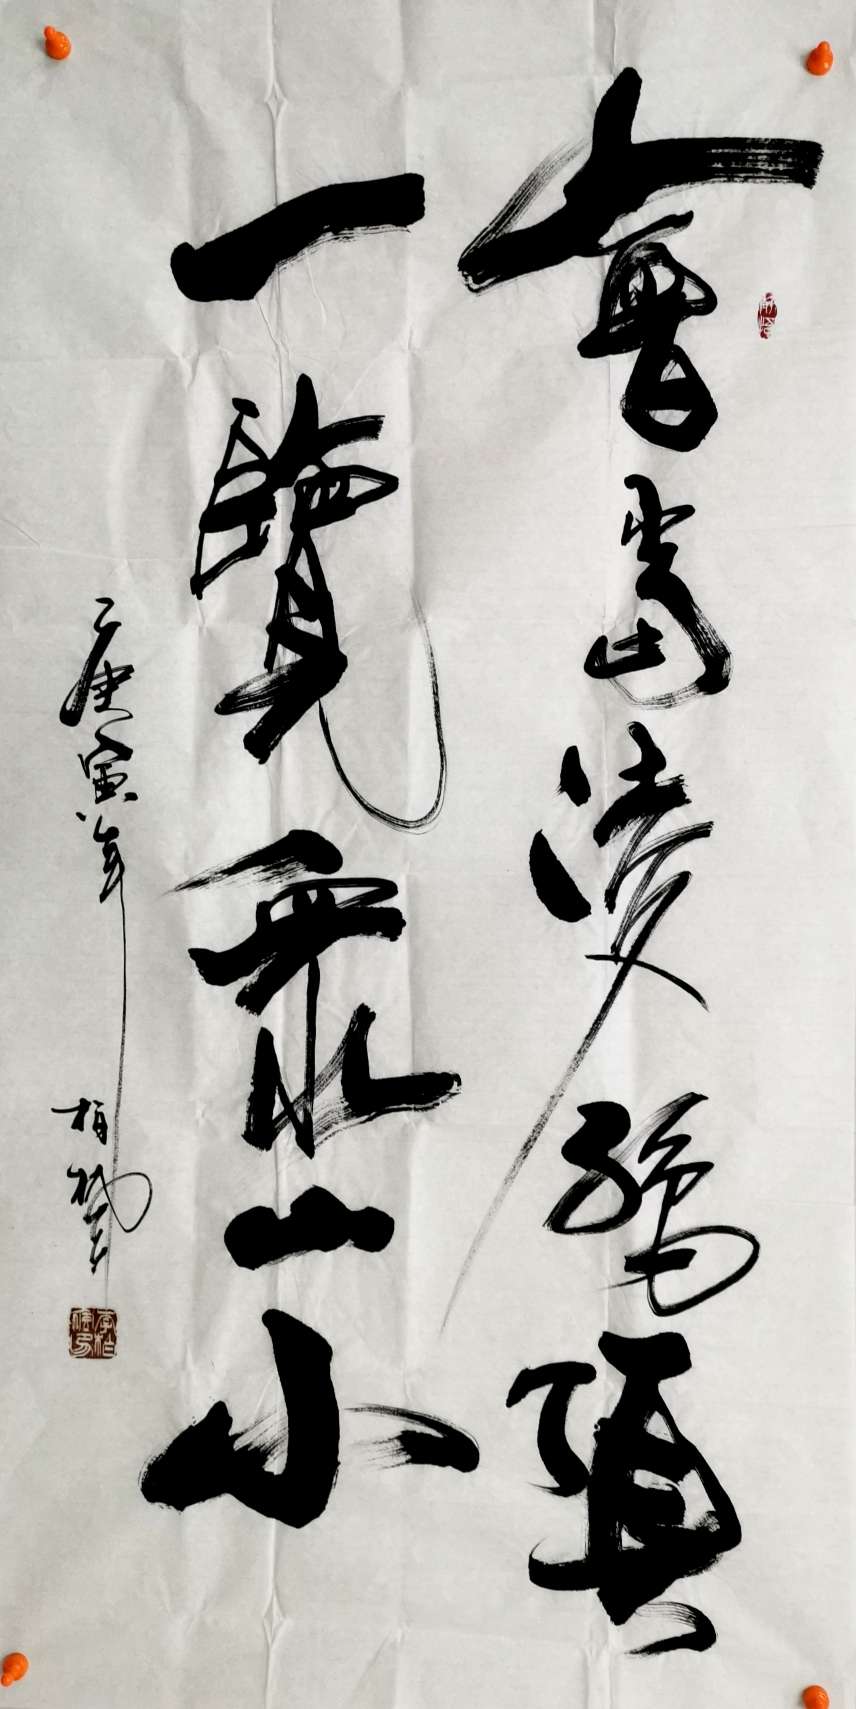 會當凌絕頂
一覽眾山小
庚寅年
柏